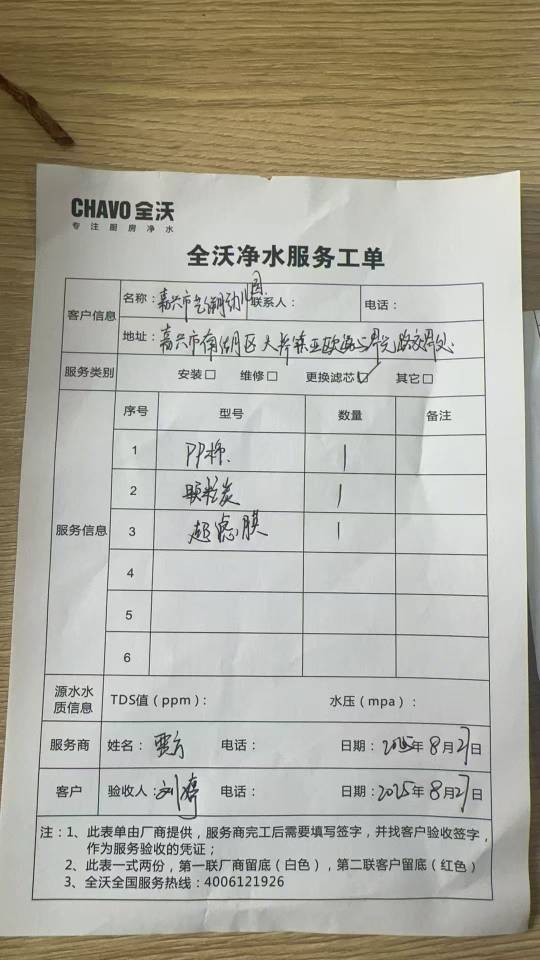 CHAVO 全沃
专注厨房净水
全沃净水服务工单
客户信息
名称：嘉兴市 幼儿园 联系人： 电话：
地址：嘉兴市南湖区大桥镇亚欧路与 路交界处
服务类别 安装□ 维修□ 更换滤芯☑ 其它□
服务信息
序号 型号 数量 备注
1 PP棉 1
2 颗粒炭 1
3 超滤膜 1
4
5
6
源水水质信息 TDS值（ppm）： 水压（mpa）：
服务商 姓名： 电话： 日期：2025年8月27日
客户 验收人：刘婷 电话： 日期：2025年8月27日
注：1、此表单由厂商提供，服务商完工后需要填写签字，并找客户验收签字，
作为服务验收的凭证；
2、此表一式两份，第一联厂商留底（白色），第二联客户留底（红色）
3、全沃全国服务热线：4006121926